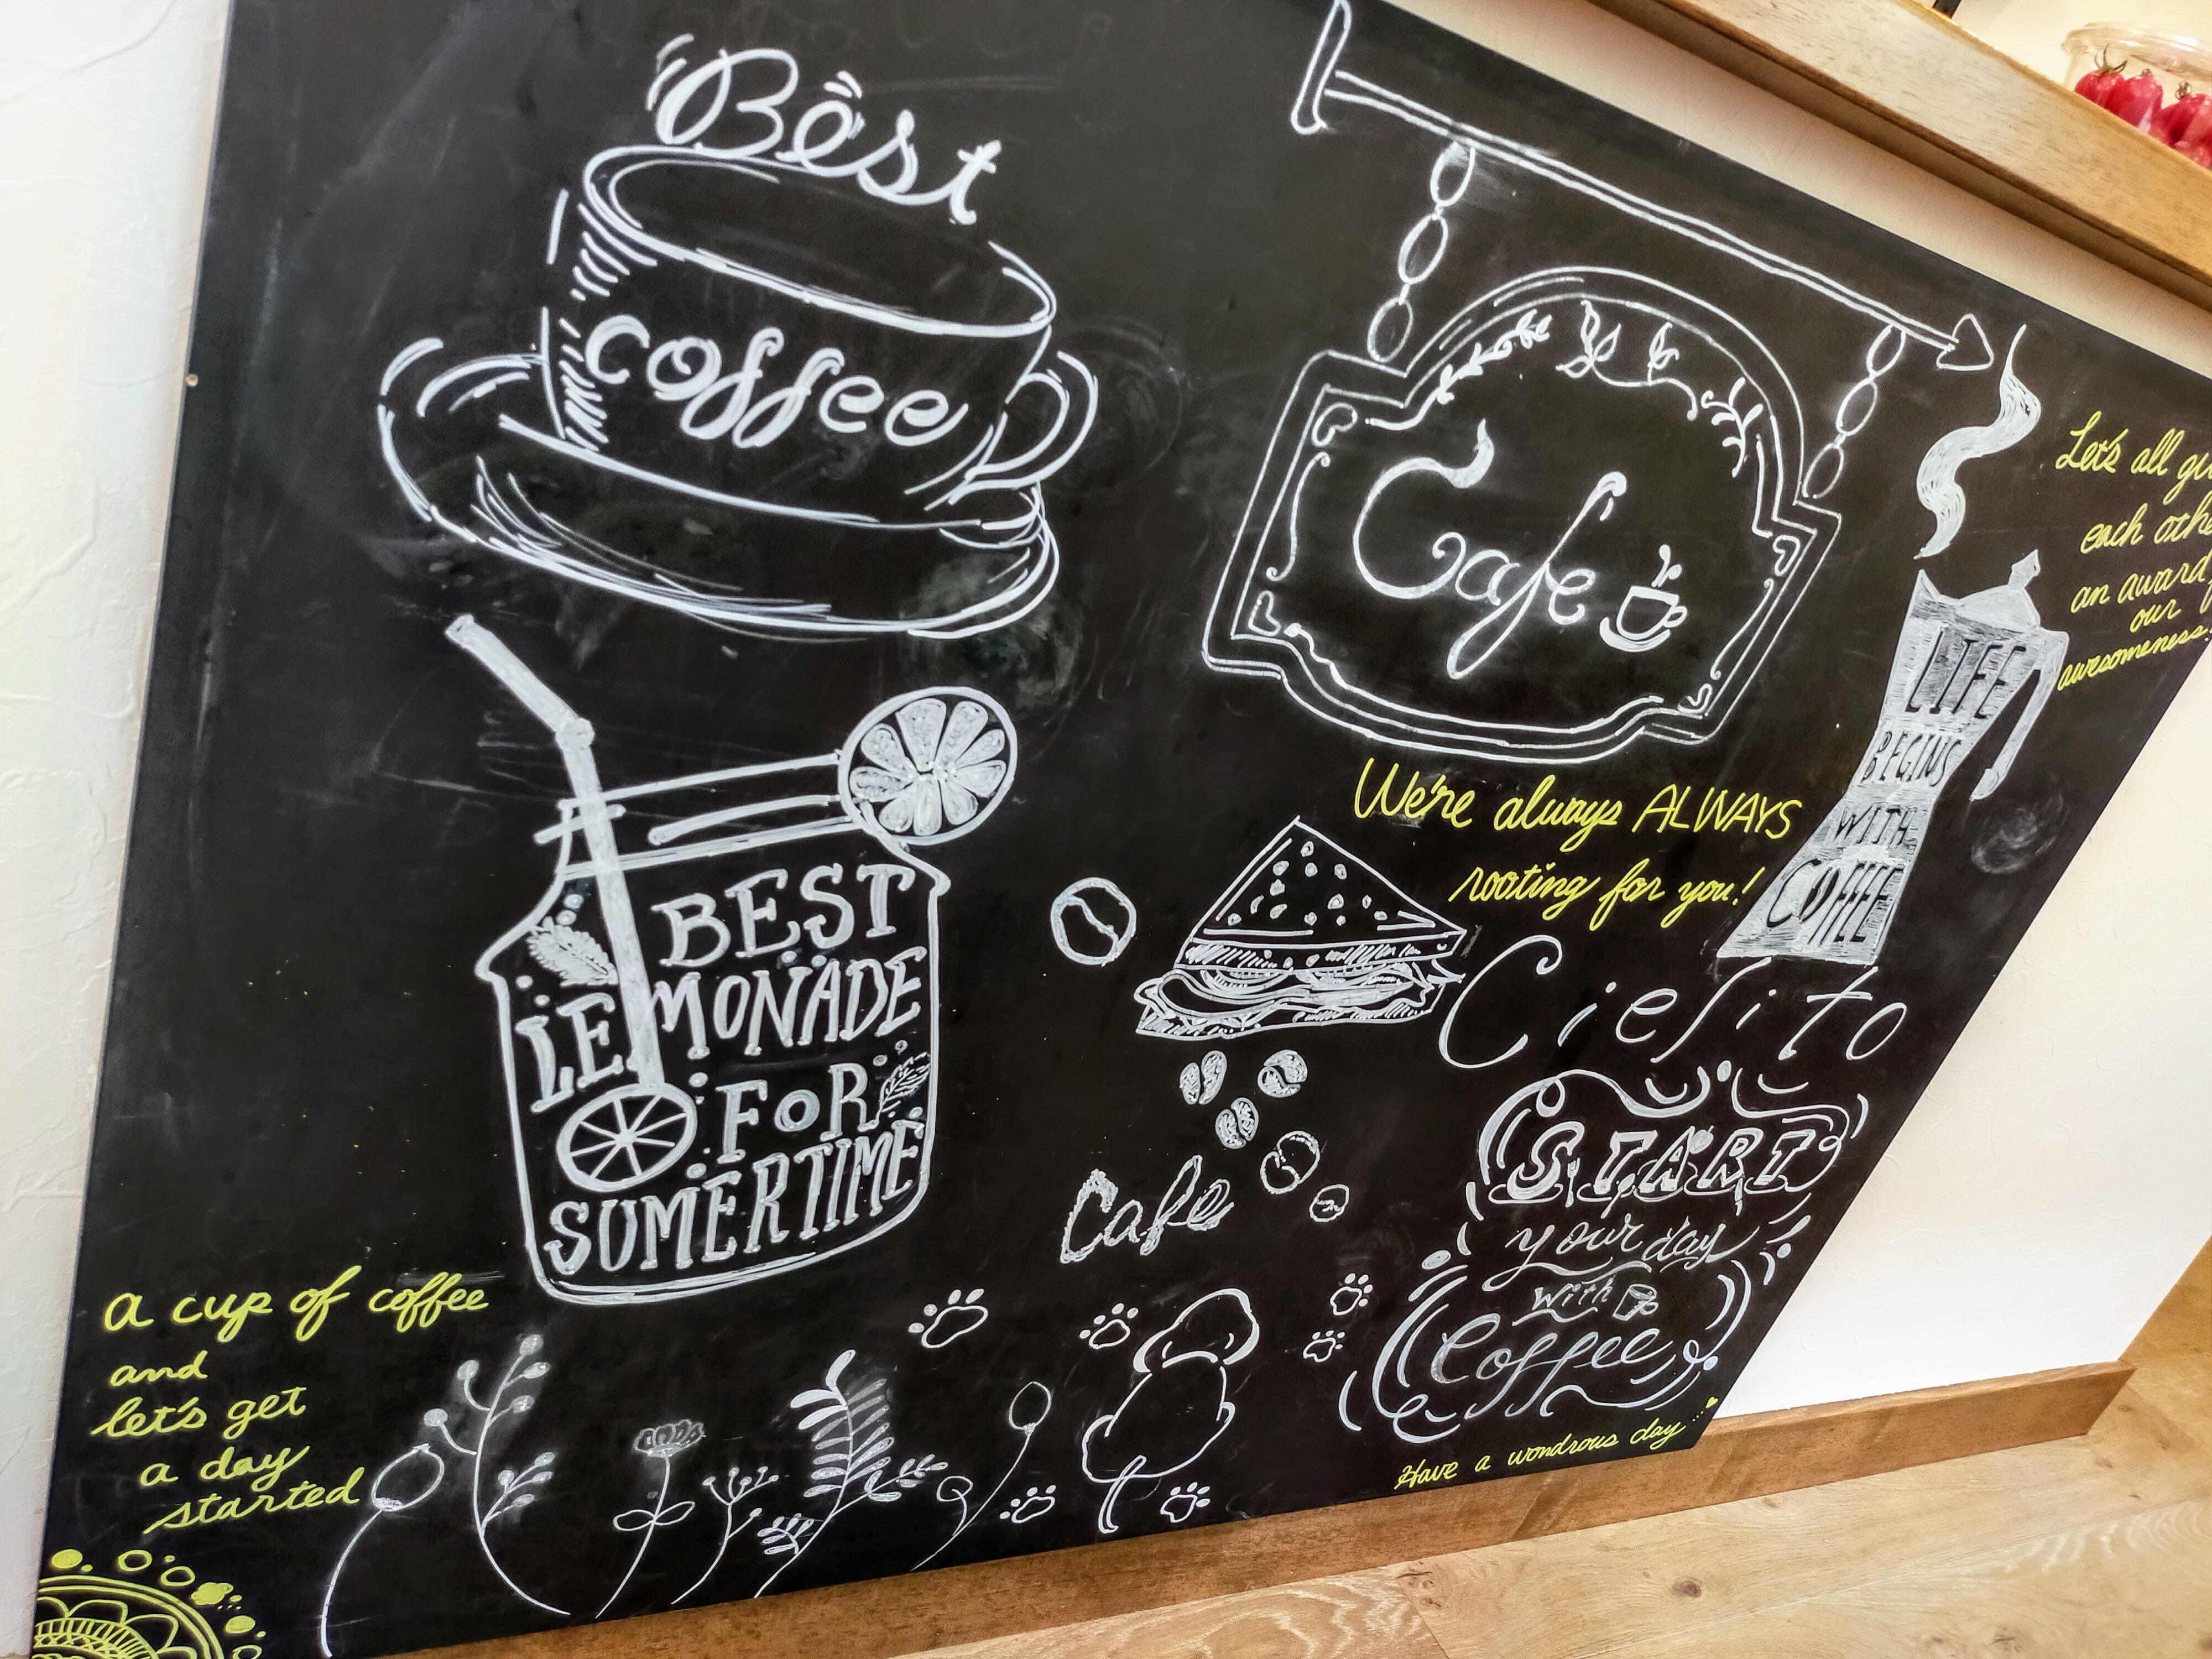 Best
coffee
Cafe
Let's all
each
an award
our
awesomeness
LIFE
BEGINS
WITH
COFFEE
We're always ALWAYS
rooting for you!
BEST
LEMONADE
FOR
SUMERTIME
Cielito
START
your day
with
Coffee
Cafe
a cup of coffee
and
let's get
a day
started
Have a wondrous day...